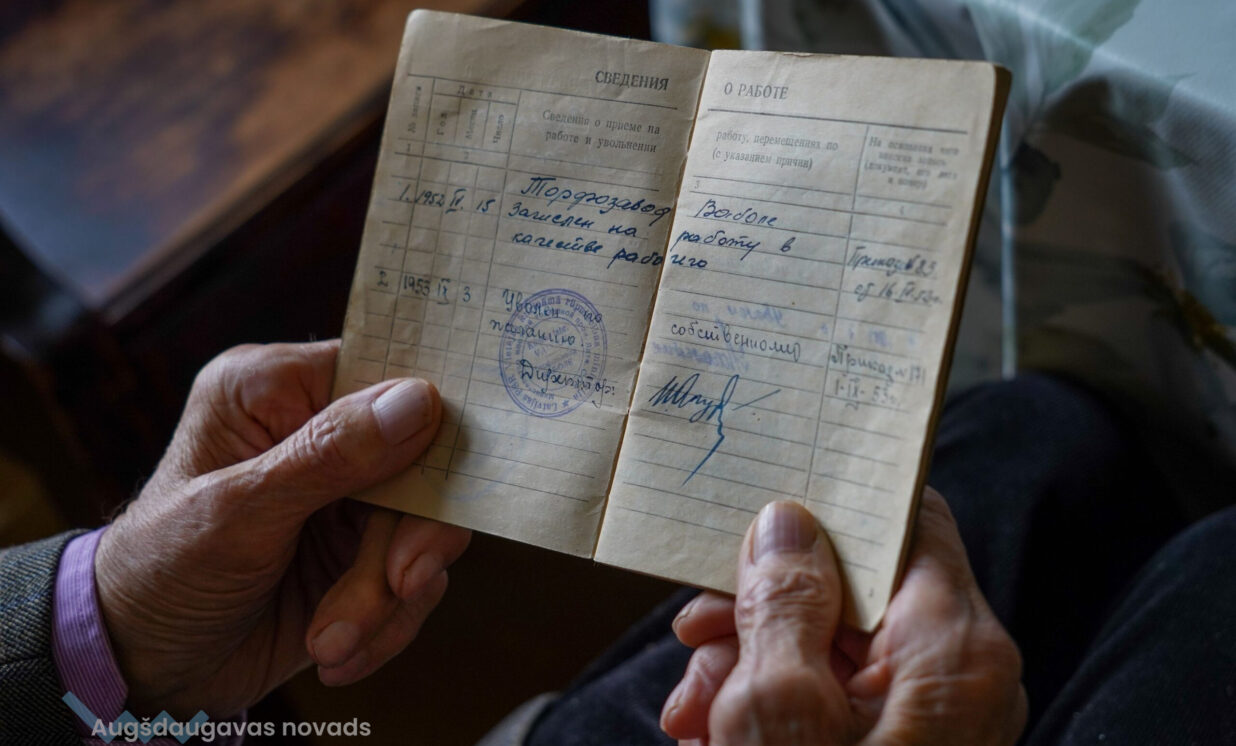 СВЕДЕНИЯ О РАБОТЕ
№ записи
Дата
Год
Месяц
Число
Сведения о приеме на работу, перемещениях по
работе и увольнении (с указанием причин)
На основании чего
внесена запись
(документ, его дата
и номер)
1
2
3
Торфозавод
1. 1952 IV. 15 Зачислен на работу в
качестве рабочего
Приказ № 83
от 16.IV.52г.
2 1953 IX 3 Уволен по
собственному
желанию
Приказ № 171
1-IX-53г.
Директор:
Augšdaugavas novads